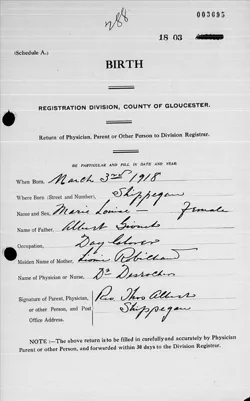 288
003695
(Schedule A.)
18 03
BIRTH
REGISTRATION DIVISION, COUNTY OF GLOUCESTER.
Return of Physician, Parent or Other Person to Division Registrar.
BE PARTICULAR AND FILL IN DATE AND YEAR
When Born, March 3rd 1918
Where Born (Street and Number), Shippegan
Name and Sex, Marie Louise — Female
Name of Father, Albert
Occupation, Day Laborer
Maiden Name of Mother, Robichaud
Name of Physician or Nurse, Dr Desrochers
Signature of Parent, Physician, Rev. Theo Albert
or other Person, and Post Shippegan
Office Address.
NOTE :—The above return is to be filled in carefully and accurately by Physician
Parent or other Person, and forwarded within 30 days to the Division Registrar.